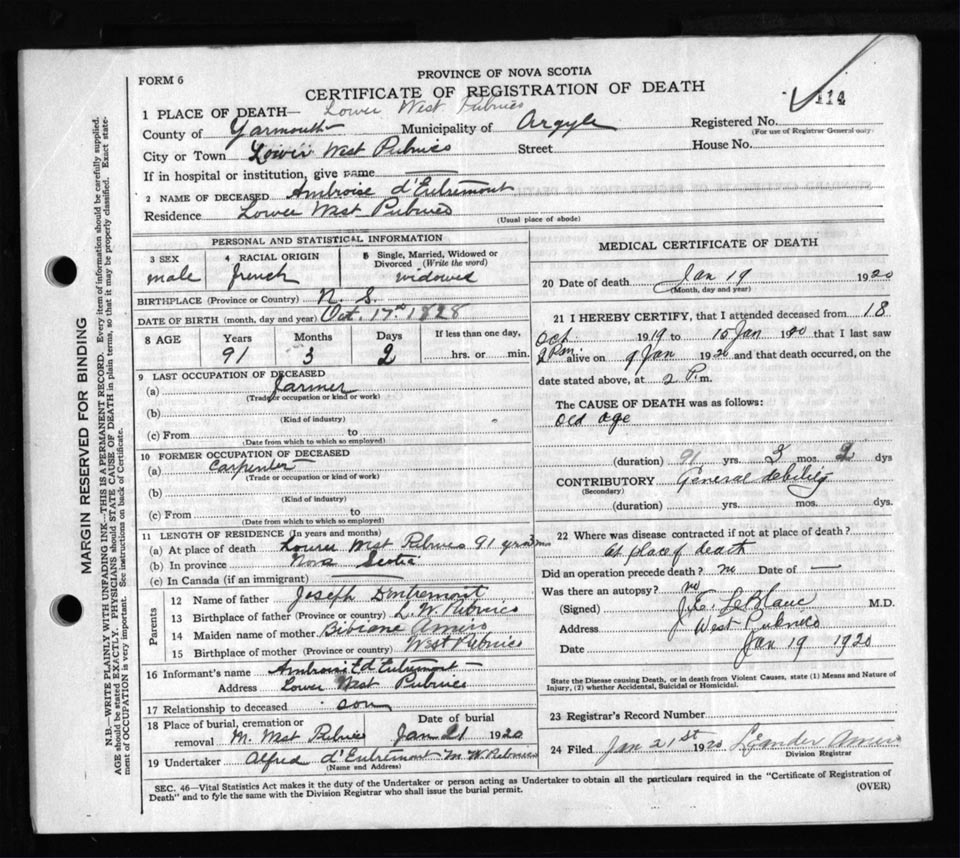 PROVINCE OF NOVA SCOTIA
FORM 6
CERTIFICATE OF REGISTRATION OF DEATH
114
1 PLACE OF DEATH— Lower West Pubnico
County of Yarmouth Municipality of Argyle Registered No.
(For use of Registrar General only)
City or Town Lower West Pubnico Street House No.
If in hospital or institution, give name
2 NAME OF DECEASED Ambroise d'Entremont
Residence Lower West Pubnico
(Usual place of abode)
PERSONAL AND STATISTICAL INFORMATION
3 SEX 4 RACIAL ORIGIN 5 Single, Married, Widowed or Divorced (Write the word)
male french widowed
BIRTHPLACE (Province or Country) N. S.
DATE OF BIRTH (month, day and year) Oct. 17th 1828
8 AGE Years Months Days If less than one day,
91 3 2 hrs. or min.
9 LAST OCCUPATION OF DECEASED
(a) Farmer
(Trade or occupation or kind or work)
(b)
(Kind of industry)
(c) From to
(Date from which to which so employed)
10 FORMER OCCUPATION OF DECEASED
(a) Carpenter
(Trade or occupation or kind or work)
(b)
(Kind of industry)
(c) From to
(Date from which to which so employed)
11 LENGTH OF RESIDENCE (In years and months)
(a) At place of death Lower West Pubnico 91 yrs 3 mo
(b) In province Nova Scotia
(c) In Canada (if an immigrant)
Parents
12 Name of father Joseph Dentremont
13 Birthplace of father (Province or country) L. W. Pubnico
14 Maiden name of mother Bibiane Amiro
15 Birthplace of mother (Province or country) West Pubnico
16 Informant's name Ambroise d'Entremont
Address Lower West Pubnico
17 Relationship to deceased son
18 Place of burial, cremation or removal M. West Pubnico
Date of burial Jan 21 1920
19 Undertaker Alfred d'Entremont M W Pubnico
(Name and Address)
MEDICAL CERTIFICATE OF DEATH
20 Date of death Jan 19 1920
(Month, day and year)
21 I HEREBY CERTIFY, that I attended deceased from 18
Oct. 1919 to 15 Jan 1920 that I last saw
2 P.m. alive on 9 Jan 1920 and that death occurred, on the
date stated above, at 2 P.m.
The CAUSE OF DEATH was as follows:
Old age
(duration) 91 yrs. 3 mos. 2 dys
CONTRIBUTORY General debility
(Secondary)
(duration) yrs. mos. dys.
22 Where was disease contracted if not at place of death?
At place of death
Did an operation precede death? no Date of —
Was there an autopsy? no
(Signed) J. E. LeBlanc M.D.
Address West Pubnico
Date Jan 19 1920
State the Disease causing Death, or in death from Violent Causes, state (1) Means and Nature of
Injury, (2) whether Accidental, Suicidal or Homicidal.
23 Registrar's Record Number
24 Filed Jan 21st 1920 Leander Amiro
Division Registrar
SEC. 46—Vital Statistics Act makes it the duty of the Undertaker or person acting as Undertaker to obtain all the particulars required in the "Certificate of Registration of
Death" and to fyle the same with the Division Registrar who shall issue the burial permit.
(OVER)
MARGIN RESERVED FOR BINDING
N.B.—WRITE PLAINLY WITH UNFADING INK—THIS IS A PERMANENT RECORD. Every item of information should be carefully supplied.
AGE should be stated EXACTLY. PHYSICIANS should STATE CAUSE OF DEATH in plain terms, so that it may be properly classified. Exact state-
ment of OCCUPATION is very important. See instructions on back of Certificate.